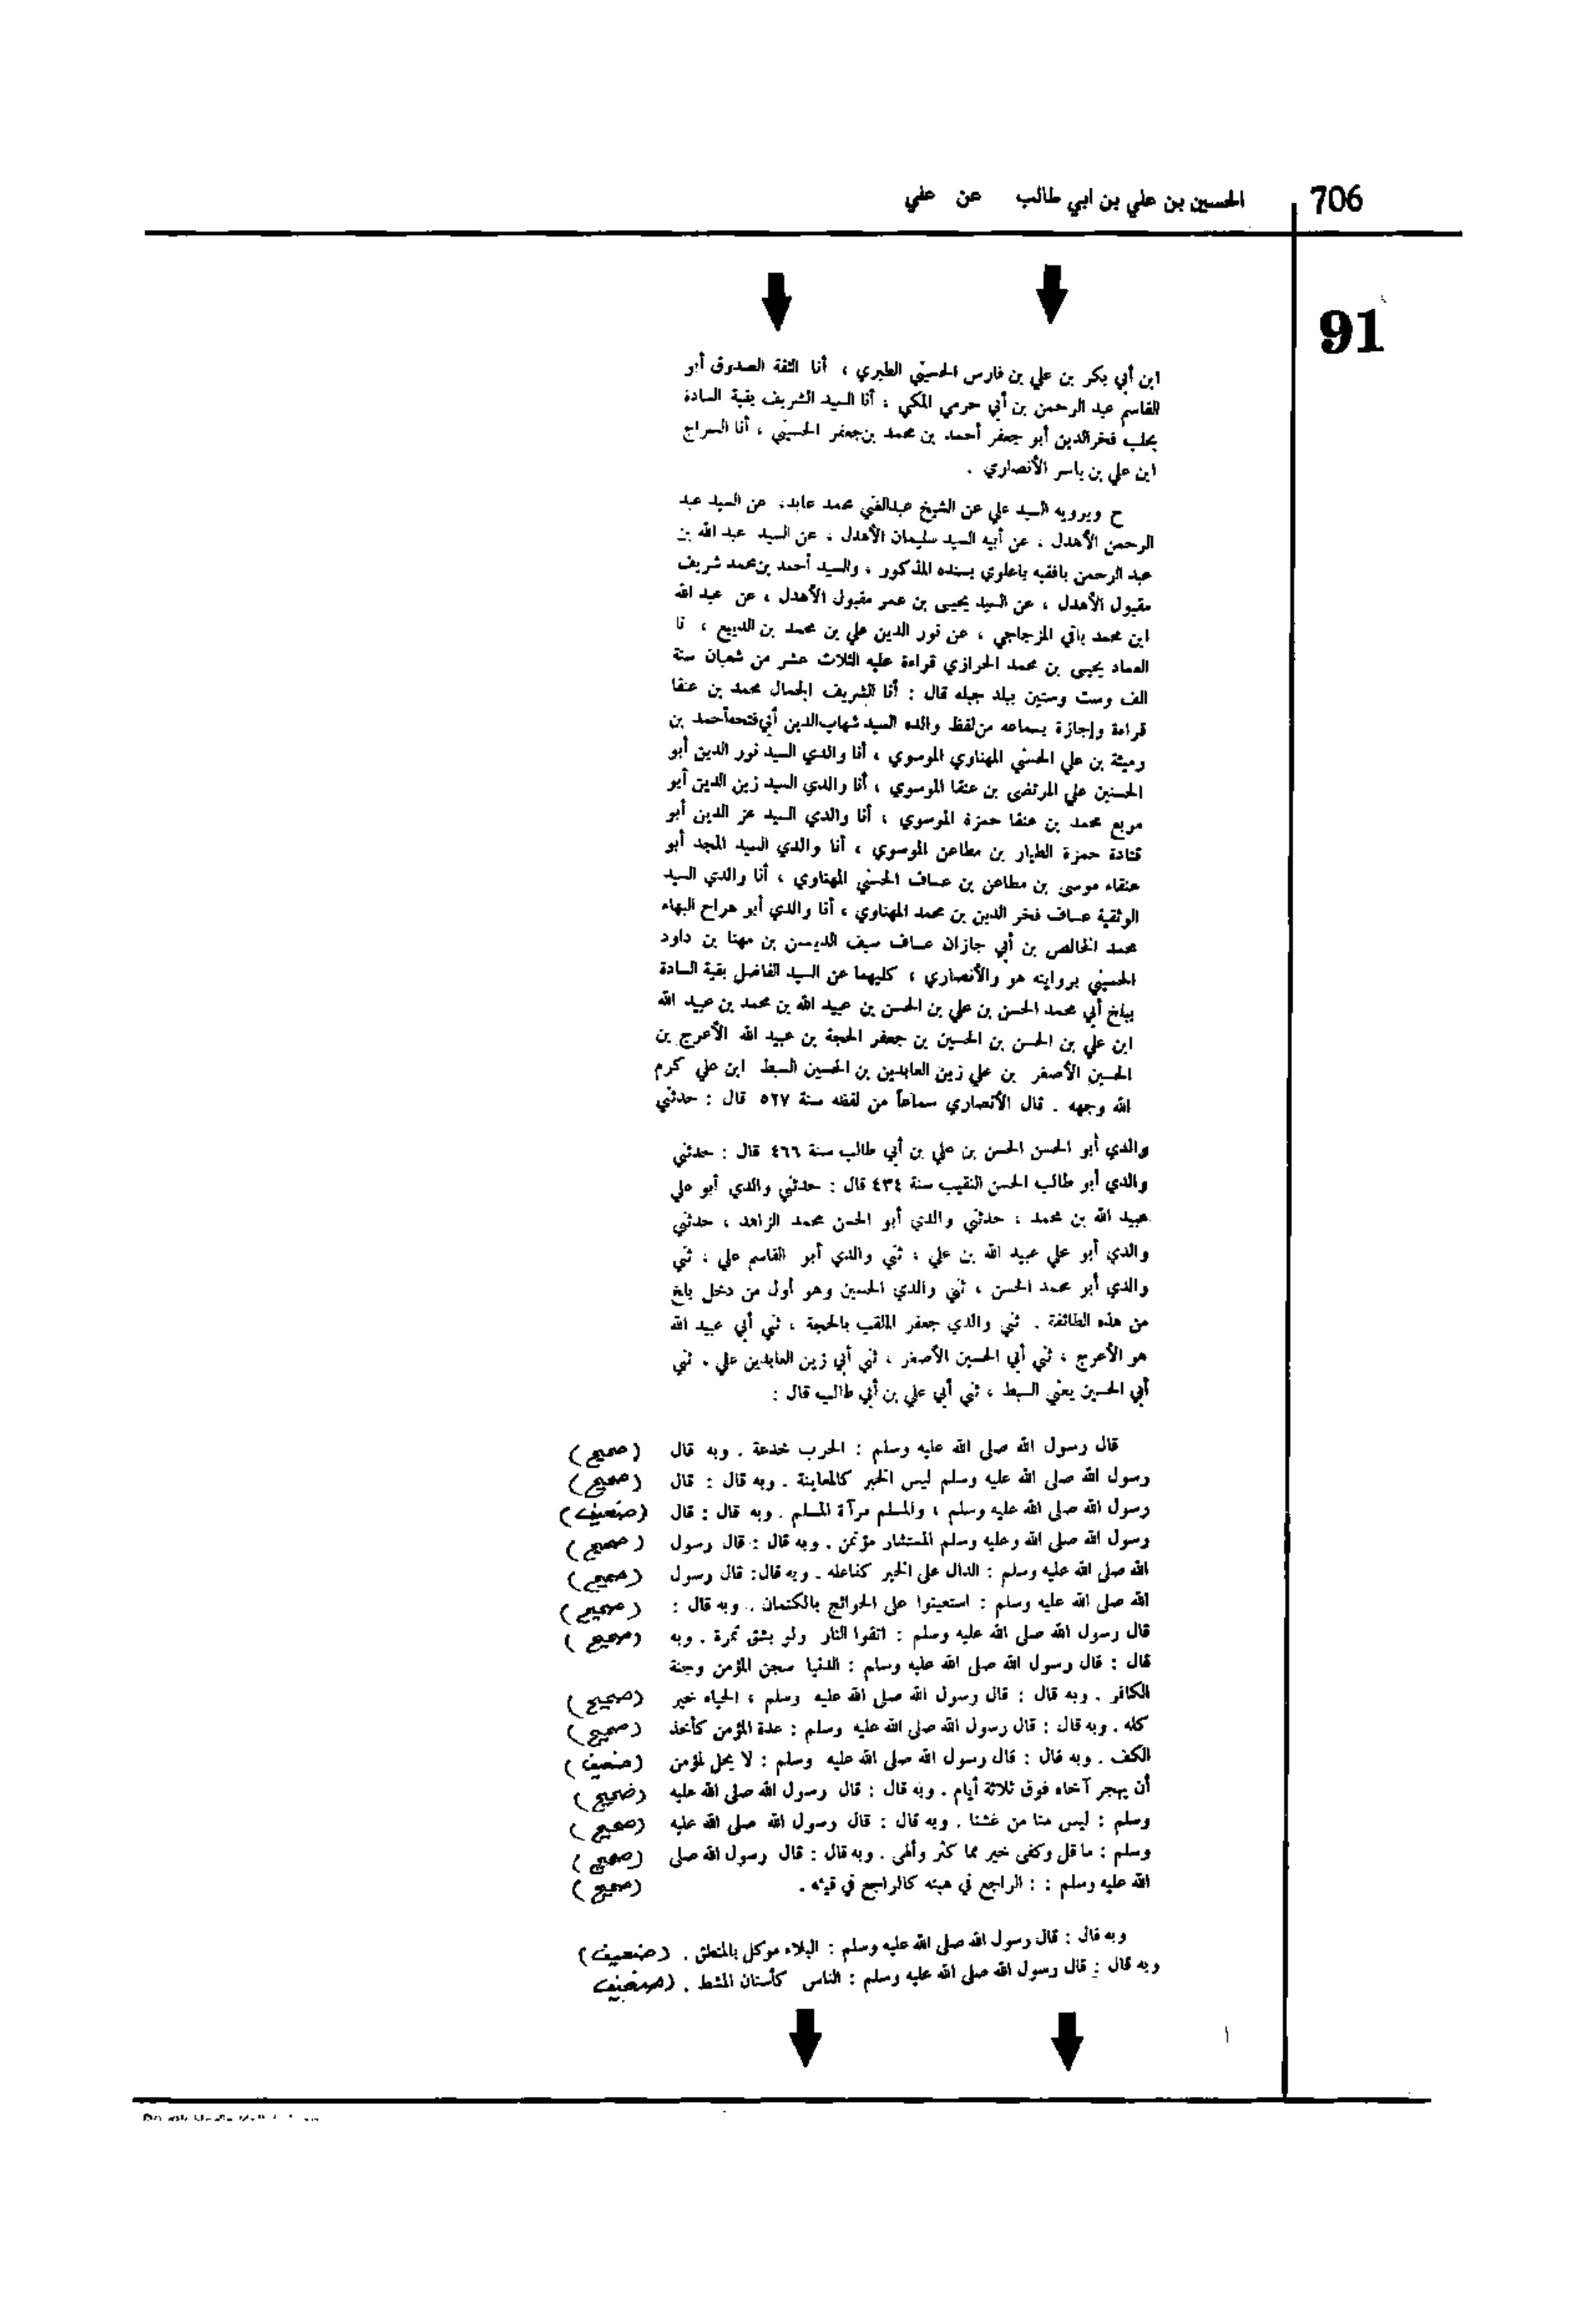 706
الحسين بن علي بن ابي طالب عن علي
91
ابن أبي بكر بن علي بن فارس الحسيني الطبري ، أنا الثقة الصدوق أبو
القاسم عبد الرحمن بن أبي حرمي المكي ، أنا السيد الشريف بقية السادة
بحلب فخرالدين أبو جعفر أحمد بن محمد بن جعفر الحسيني ، أنا السراج
ابن علي بن ياسر الأنصاري .
ح ويرويه السيد علي عن الشيخ عبدالغني محمد عابد، عن السيد عبد
الرحمن الأهدل ، عن أبيه السيد سليمان الأهدل ، عن السيد عبد الله بن
عبد الرحمن بافقيه باعلوي بسنده المذكور ، والسيد أحمد بن محمد شريف
مقبول الأهدل ، عن السيد يحيى بن عمر مقبول الأهدل ، عن عبد الله
ابن محمد باقي المزجاجي ، عن نور الدين علي بن محمد بن الديبع ، نا
العماد يحيى بن محمد الحرازي قراءة عليه الثلاث عشر من شعبان سنة
الف وست وستين ببلد جبله قال : أنا الشريف الجمال محمد بن عنقا
قراءة وإجازة بسماعه من لفظ والده السيد شهاب الدين أبي فتحه أحمد بن
رميثة بن علي الحسني المهناوي الموسوي ، أنا والدي السيد نور الدين أبو
الحسنين علي المرتضى بن عنقا الموسوي ، أنا والدي السيد زين الدين أبو
مربع محمد بن عنقا حمزة الموسوي ، أنا والدي السيد عز الدين أبو
قتادة حمزة الطيار بن مطاعن الموسوي ، أنا والدي السيد المجد أبو
عنقاء موسى بن مطاعن بن عساف الحسني المهناوي ، أنا والدي السيد
الوثقية عساف فخر الدين بن محمد المهناوي ، أنا والدي أبو هراج البهاء
محمد الخالص بن أبي جازان عساف سيف الديسن بن مهنا بن داود
الحسيني بروايته هو والأنصاري ، كليهما عن السيد الفاضل بقية السادة
ببلخ أبي محمد الحسن بن علي بن الحسن بن عبيد الله بن محمد بن عبيد الله
ابن علي بن الحسن بن الحسين بن جعفر الحجة بن عبيد الله الأعرج بن
الحسين الأصغر بن علي زين العابدين بن الحسين السبط ابن علي كرم
الله وجهه . قال الأنصاري سماعاً من لفظه سنة ٥٢٧ قال : حدثني
والدي أبو الحسن الحسن بن علي بن أبي طالب سنة ٤٦٦ قال : حدثني
والدي أبو طالب الحسن النقيب سنة ٤٣٤ قال : حدثني والدي أبو علي
عبيد الله بن محمد ، حدثني والدي أبو الحسن محمد الزاهد ، حدثني
والدي أبو علي عبيد الله بن علي ، ثني والدي أبو القاسم علي ، ثني
والدي أبو محمد الحسن ، ثني والدي الحسين وهو أول من دخل بلخ
من هذه الطائفة . ثني والدي جعفر الملقب بالحجة ، ثني أبي عبيد الله
هو الأعرج ، ثني أبي الحسين الأصغر ، ثني أبي زين العابدين علي . ثني
أبي الحسين يعني السبط ، ثني أبي علي بن أبي طالب قال :
قال رسول الله صلى الله عليه وسلم : الحرب خدعة . وبه قال (صحيح)
رسول الله صلى الله عليه وسلم ليس الخبر كالمعاينة . وبه قال : قال (صحيح)
رسول الله صلى الله عليه وسلم ، والمسلم مرآة المسلم . وبه قال : قال (ضعيف)
رسول الله صلى الله وعليه وسلم المستشار مؤتمن . وبه قال : قال رسول (صحيح)
الله صلى الله عليه وسلم : الدال على الخير كفاعله . وبه قال: قال رسول (صحيح)
الله صلى الله عليه وسلم : استعينوا على الحوائج بالكتمان . وبه قال : (صحيح)
قال رسول الله صلى الله عليه وسلم : اتقوا النار ولو بشق تمرة . وبه (صحيح)
قال : قال رسول الله صلى الله عليه وسلم : الدنيا سجن المؤمن وجنة
الكافر . وبه قال : قال رسول الله صلى الله عليه وسلم ، الحياء خير (صحيح)
كله . وبه قال : قال رسول الله صلى الله عليه وسلم : عدة المؤمن كأخذ (صحيح)
الكف . وبه قال : قال رسول الله صلى الله عليه وسلم : لا يحل لمؤمن (ضعيف)
أن يهجر آخاه فوق ثلاثة أيام . وبه قال : قال رسول الله صلى الله عليه (صحيح)
وسلم : ليس منا من غشنا . وبه قال : قال رسول الله صلى الله عليه (صحيح)
وسلم : ما قل وكفى خير مما كثر وألهى . وبه قال : قال رسول الله صلى (صحيح)
الله عليه وسلم : : الراجع في هبته كالراجع في قيئه . (صحيح)
وبه قال : قال رسول الله صلى الله عليه وسلم : البلاء موكل بالمنطق . (ضعيف)
وبه قال : قال رسول الله صلى الله عليه وسلم : الناس كأسنان المشط . (ضعيف